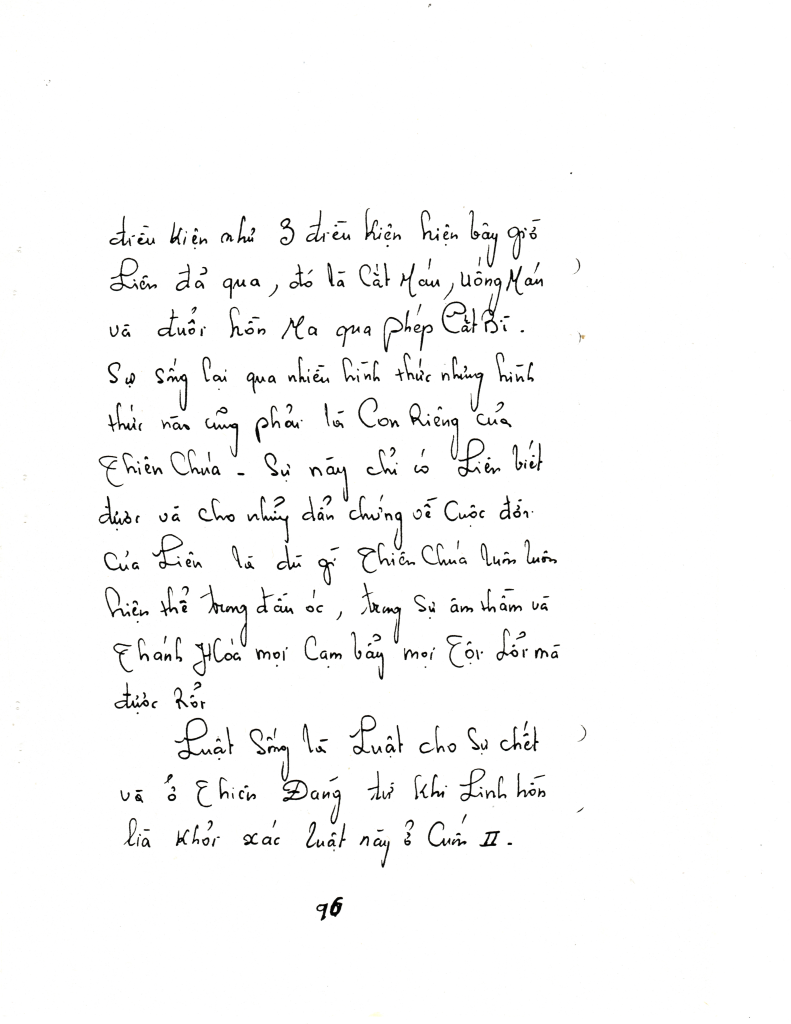 điều kiện như 3 điều kiện hiện bây giờ
Liên đã qua, đó là Cắt Máu, Uống Máu
và đuổi hồn Ma qua phép Cắt Bì.
Sự sống lại qua nhiều hình thức nhưng hình
thức nào cũng phải là Con Riêng của
Thiên Chúa - Sự này chỉ có Liên biết
được và cho những dẫn chứng về Cuộc đời
Của Liên là dù gì Thiên Chúa luôn luôn
hiện thể trong đầu óc, trong Sự âm thầm và
Thánh Hóa mọi Cạm bẫy mọi Tội Lỗi mà
được Rỗi
Luật Sống là Luật cho Sự chết
và ở Thiên Đàng từ khi Linh hồn
lià khỏi xác luật này ở Cuốn II.
96